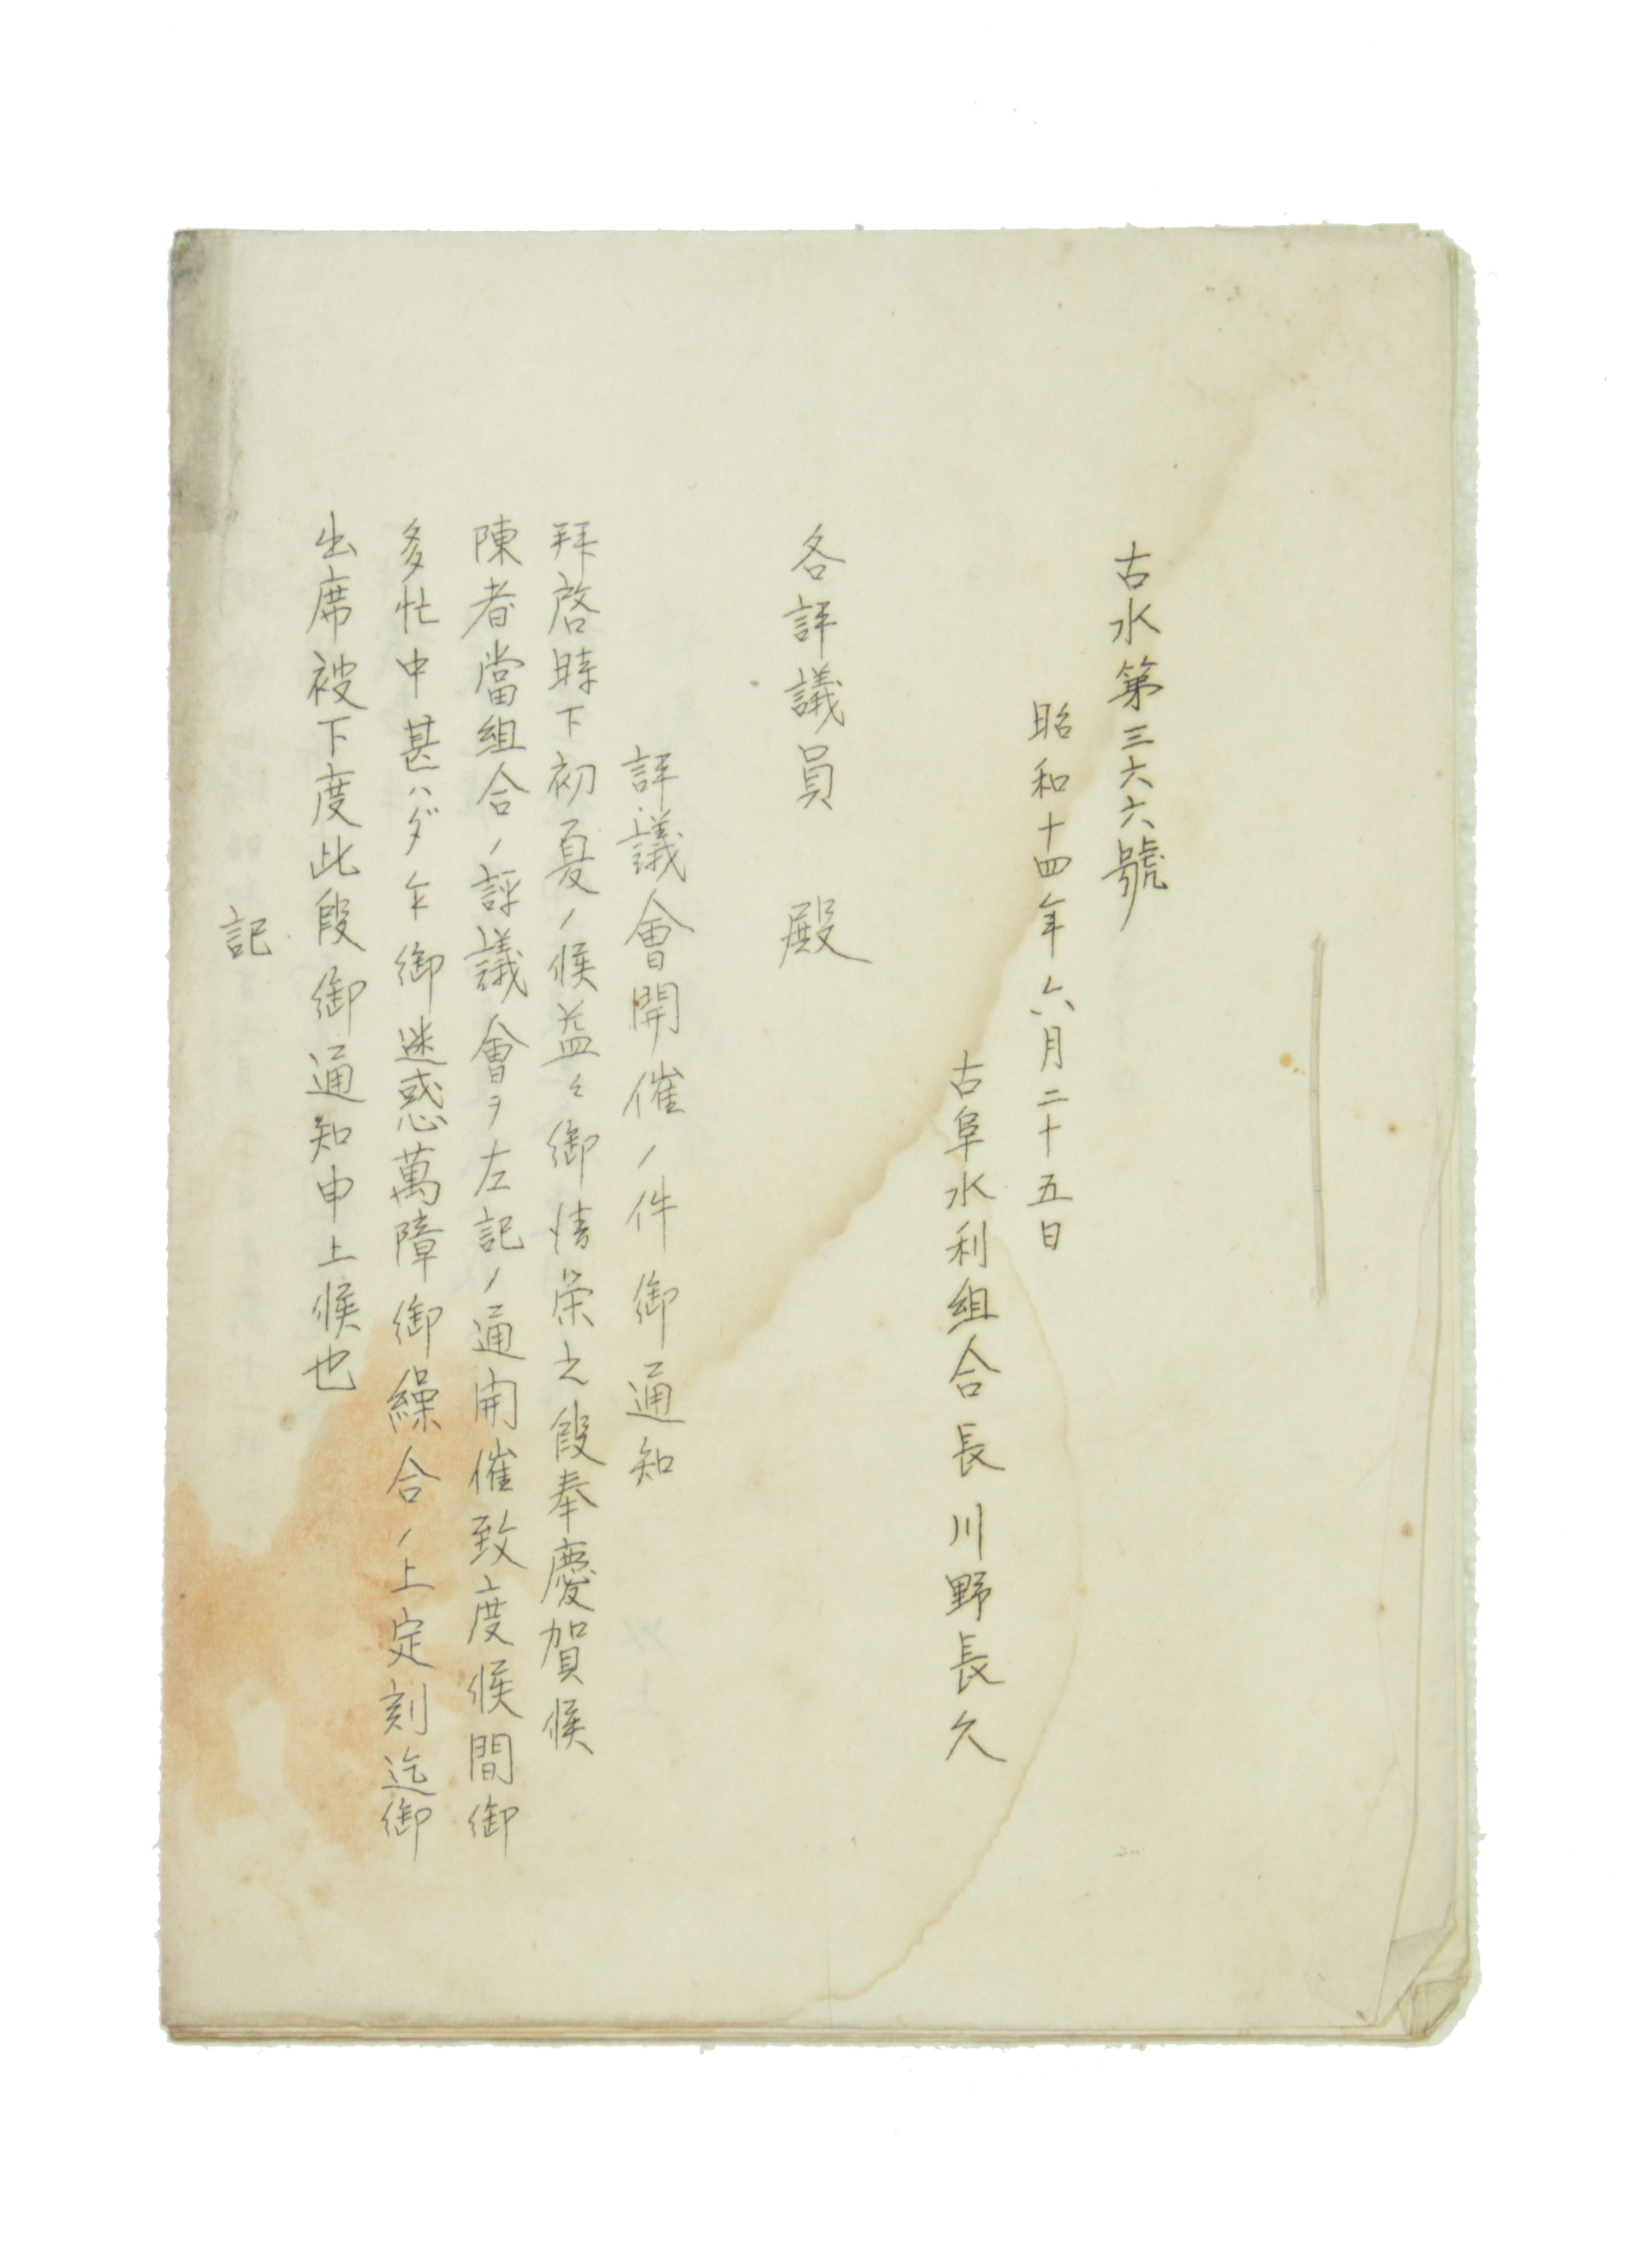 古水第三六六號
昭和十四年六月二十五日
古阜水利組合長川野長久
各評議員 殿
評議會開催ノ件御通知
拜啓時下初夏ノ候益々御情榮之段奉慶賀候
陳者當組合ノ評議會ヲ左記ノ通開催致度候間御
多忙中甚ハダ乍御迷惑萬障御繰合ノ上定刻迄御
出席被下度此段御通知申上候也
記